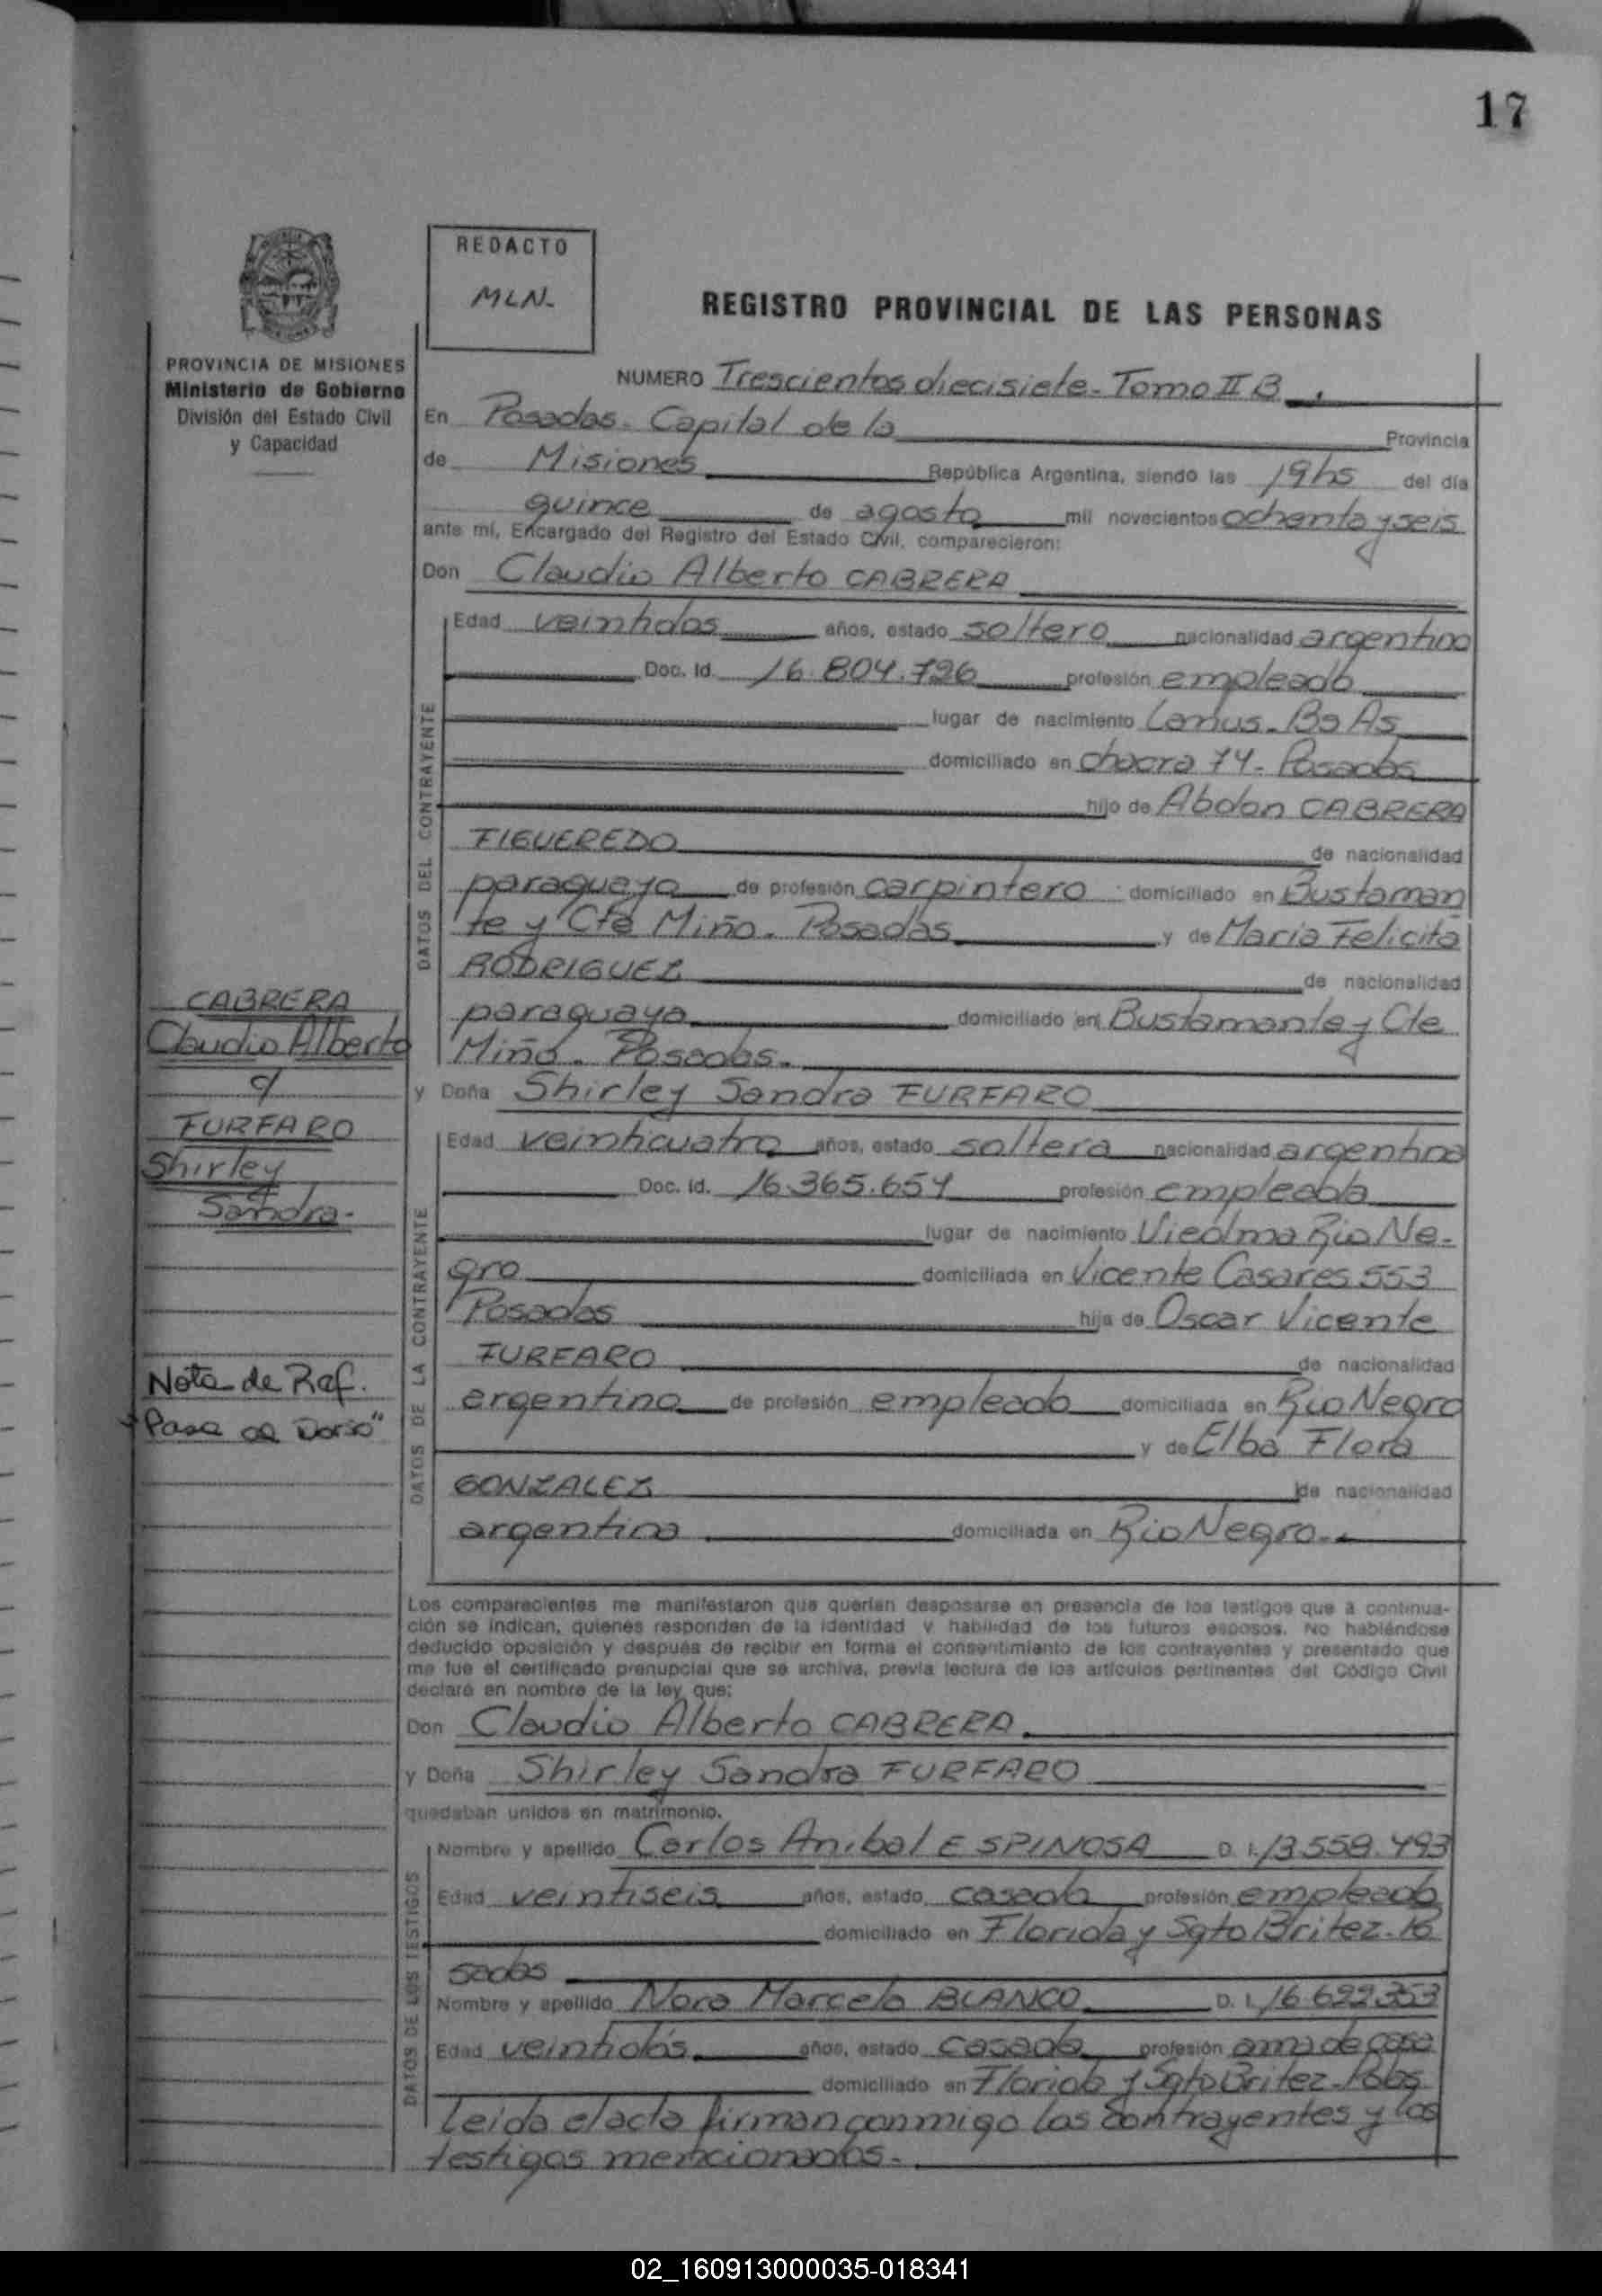 17
REDACTO
MLN-
REGISTRO PROVINCIAL DE LAS PERSONAS
PROVINCIA DE MISIONES
Ministerio de Gobierno
División del Estado Civil
y Capacidad
NUMERO Trescientos diecisiete - Tomo II B
En Posadas. Capital de la Provincia
de Misiones República Argentina, siendo las 19hs del día
quince de agosto mil novecientos ochenta y seis
ante mí, Encargado del Registro del Estado Civil, comparecieron:
Don Claudio Alberto CABRERA
DATOS DEL CONTRAYENTE
Edad veintidos años, estado soltero nacionalidad argentina
Doc. Id. 16.804.726 profesión empleado
lugar de nacimiento Lanus - Bs As
domiciliado en chacra 74 - Posadas
hijo de Abdon CABRERA
FIGUEREDO de nacionalidad
paraguaya de profesión carpintero domiciliado en Bustaman
te y Cte Miño. Posadas y de Maria Felicita
RODRIGUEZ de nacionalidad
paraguaya domiciliado en Bustamante y Cte
Miño. Posadas.
CABRERA
Claudio Alberto
c/
FURFARO
Shirley
Sandra-
y Doña Shirley Sandra FURFARO
DATOS DE LA CONTRAYENTE
Edad veinticuatro años, estado soltera nacionalidad argentina
Doc. Id. 16.365.654 profesión empleada
lugar de nacimiento Viedma Rio Ne-
gro domiciliada en Vicente Casares 553
Posadas hija de Oscar Vicente
FURFARO de nacionalidad
argentina de profesión empleado domiciliada en Rio Negro
y de Elba Flora
GONZALEZ de nacionalidad
argentina domiciliada en Rio Negro.-
Nota de Ref.
"Pasa al Dorso"
Los comparecientes me manifestaron que querían desposarse en presencia de los testigos que a continua-
ción se indican, quienes responden de la identidad y habilidad de los futuros esposos. No habiéndose
deducido oposición y después de recibir en forma el consentimiento de los contrayentes y presentado que
me fue el certificado prenupcial que se archiva, previa lectura de los artículos pertinentes del Código Civil
declaré en nombre de la ley que:
Don Claudio Alberto CABRERA.
y Doña Shirley Sandra FURFARO
quedaban unidos en matrimonio.
DATOS DE LOS TESTIGOS
Nombre y apellido Carlos Anibal ESPINOSA D. I. 13.558.493
Edad veintiseis años, estado casado profesión empleado
domiciliado en Florida y Sgto Britez - Po
sadas
Nombre y apellido Nora Marcela BLANCO D. I. 16.622.353
Edad veintidós años, estado casada profesión ama de casa
domiciliado en Florida y Sgto Britez - Pdas
Leida el acta firman conmigo los contrayentes y los
testigos mencionados.-
02_160913000035-018341